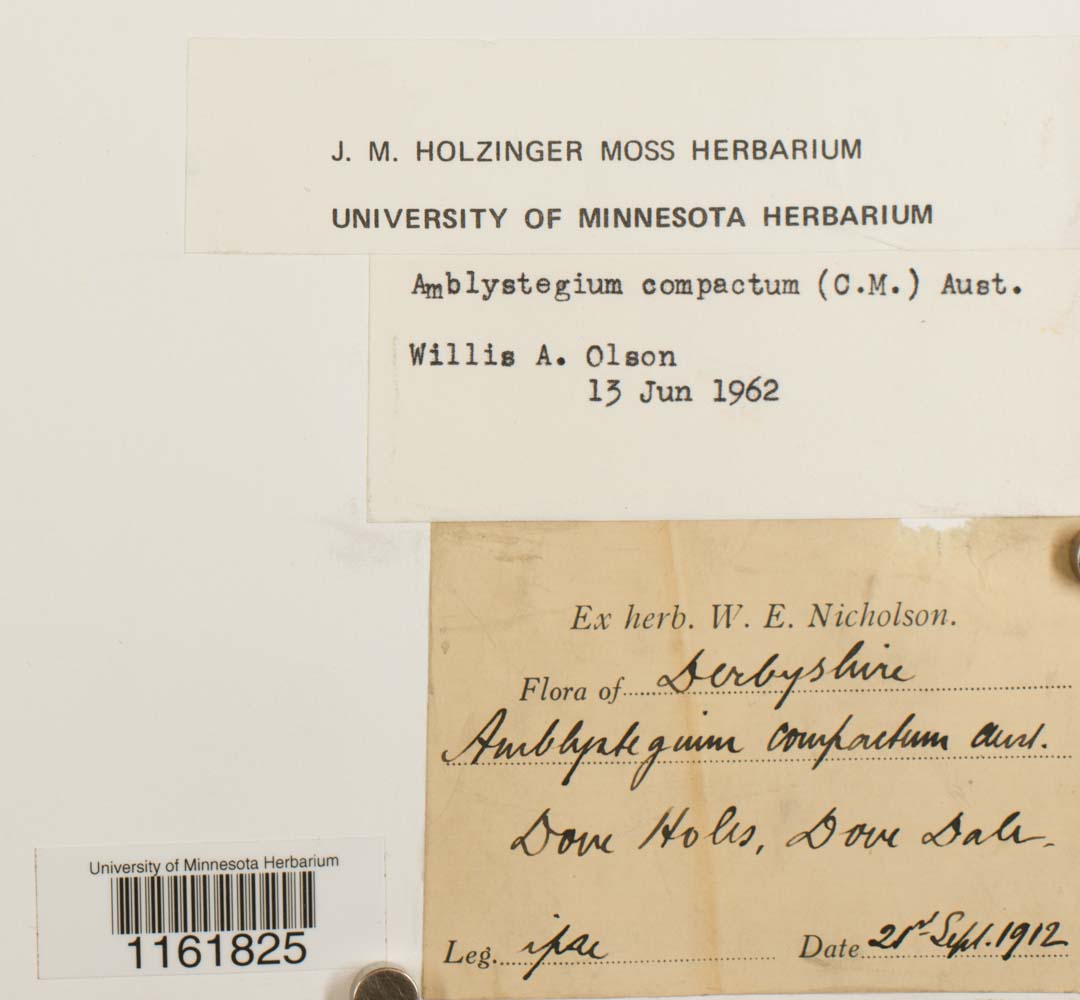 J. M. HOLZINGER MOSS HERBARIUM
UNIVERSITY OF MINNESOTA HERBARIUM
Amblystegium compactum (C.M.) Aust.
Willis A. Olson
13 Jun 1962
Ex herb. W. E. Nicholson.
Flora of Derbyshire
Amblystegium compactum Aust.
Dove Holes, Dove Dale.
Leg. ipse Date 21st Sept. 1912
University of Minnesota Herbarium
1161825